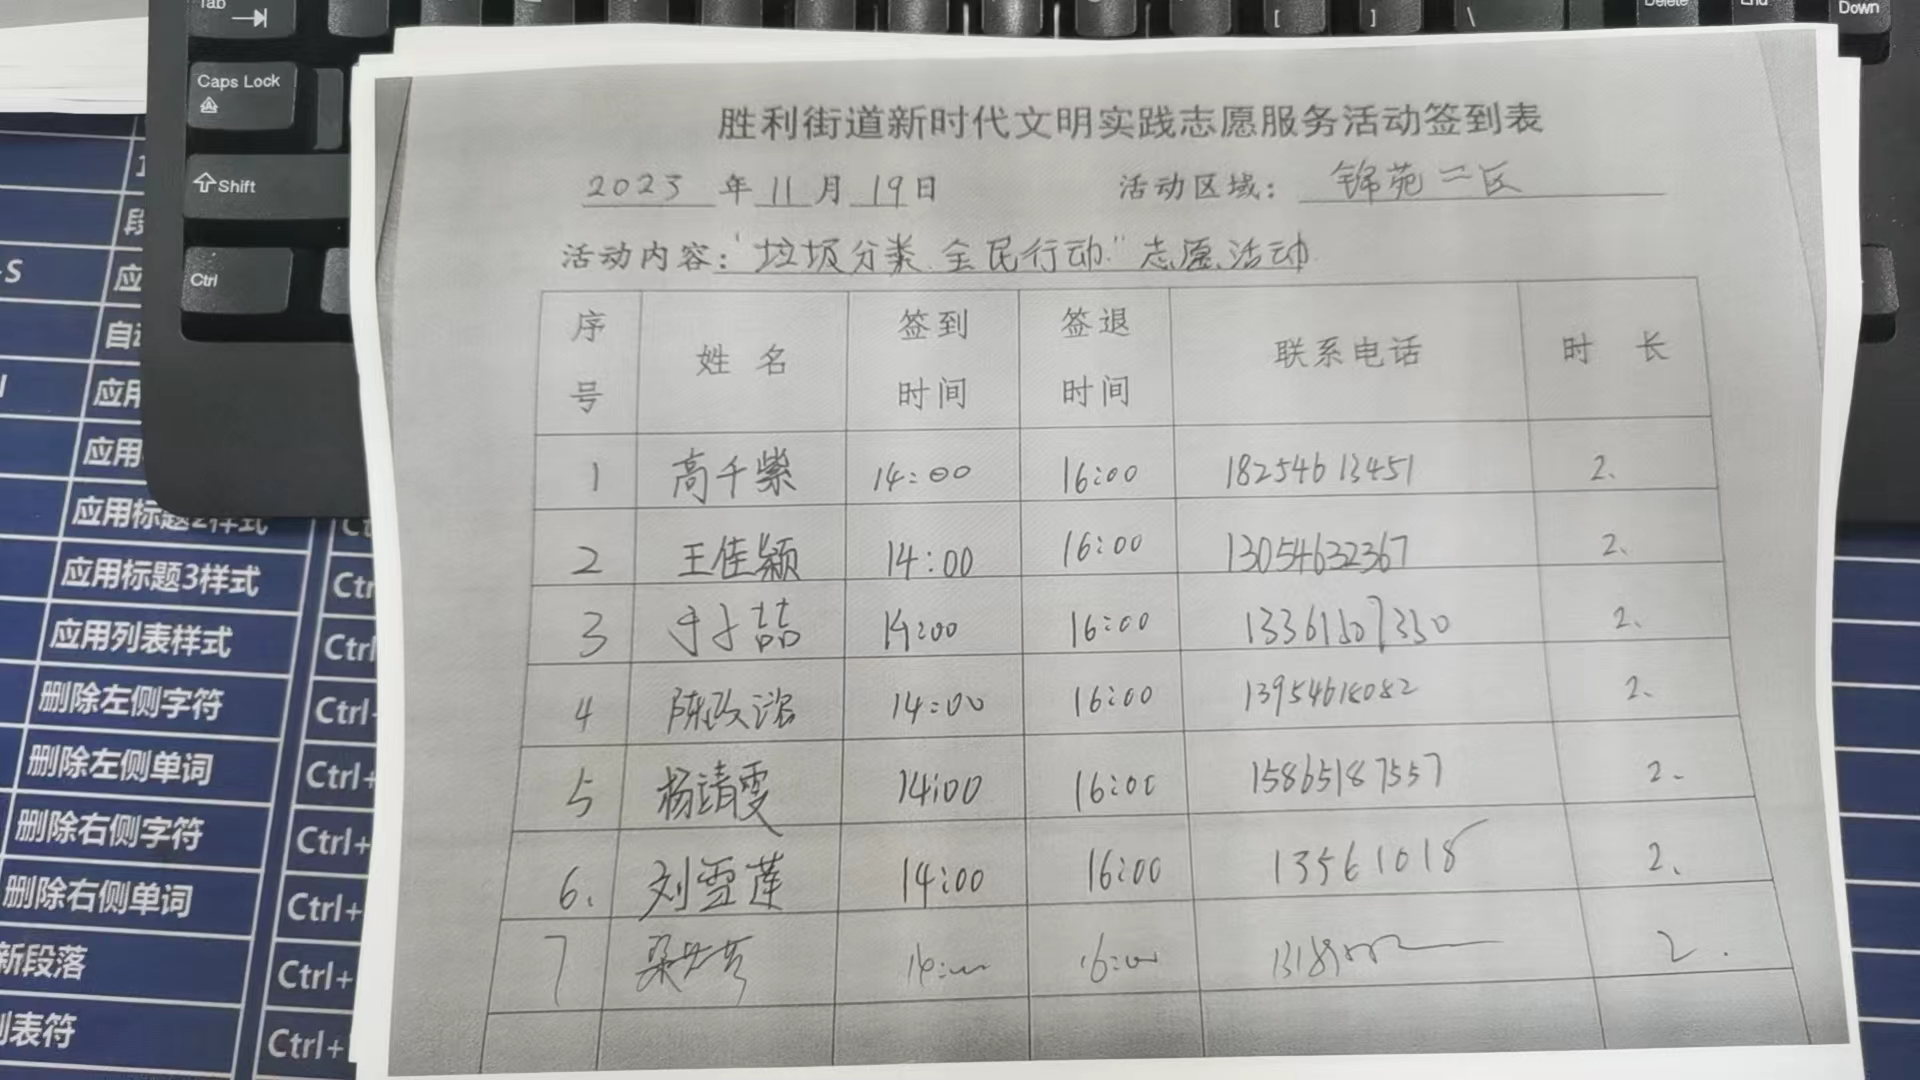 Tab
Caps Lock
Shift
Ctrl
[
]
\
Delete
End
Down
胜利街道新时代文明实践志愿服务活动签到表
2023 年 11 月 19 日 活动区域: 锦苑二区
活动内容: "垃圾分类 全民行动" 志愿活动
序号 姓名 签到时间 签退时间 联系电话 时长
1 高千紫 14:00 16:00 18254613451 2.
2 王佳颖 14:00 16:00 13054632367 2.
3 于子喆 14:00 16:00 13361507330 2.
4 陈政 14:00 16:00 13954618082 2.
5 杨靖雯 14:00 16:00 15865187557 2.
6. 刘雪莲 14:00 16:00 13561018 2.
7 14: 16: 2.
应用标题2样式
应用标题3样式 Ctrl
应用列表样式 Ctrl
删除左侧字符 Ctrl+
删除左侧单词 Ctrl+
删除右侧字符 Ctrl+
删除右侧单词 Ctrl+
新段落 Ctrl+
列表符 Ctrl+